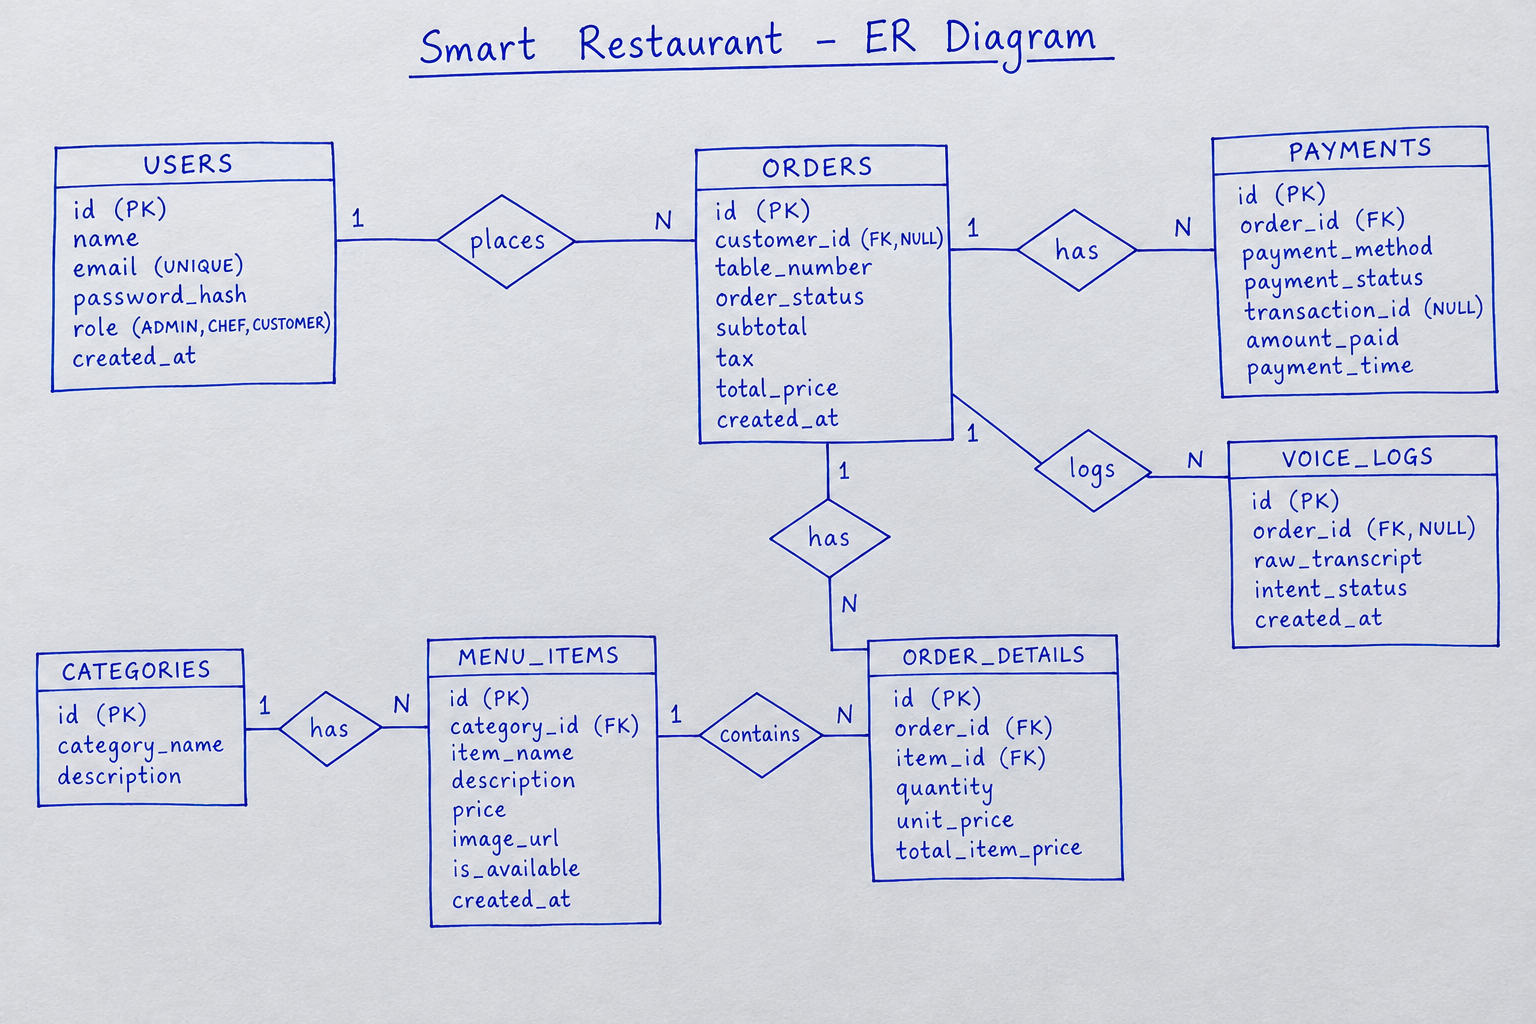 Smart Restaurant - ER Diagram
USERS
id (PK)
name
email (UNIQUE)
password_hash
role (ADMIN, CHEF, CUSTOMER)
created_at
1
places
N
ORDERS
id (PK)
customer_id (FK, NULL)
table_number
order_status
subtotal
tax
total_price
created_at
1
has
N
PAYMENTS
id (PK)
order_id (FK)
payment_method
payment_status
transaction_id (NULL)
amount_paid
payment_time
1
logs
N
VOICE_LOGS
id (PK)
order_id (FK, NULL)
raw_transcript
intent_status
created_at
1
has
N
CATEGORIES
id (PK)
category_name
description
1
has
N
MENU_ITEMS
id (PK)
category_id (FK)
item_name
description
price
image_url
is_available
created_at
1
contains
N
ORDER_DETAILS
id (PK)
order_id (FK)
item_id (FK)
quantity
unit_price
total_item_price